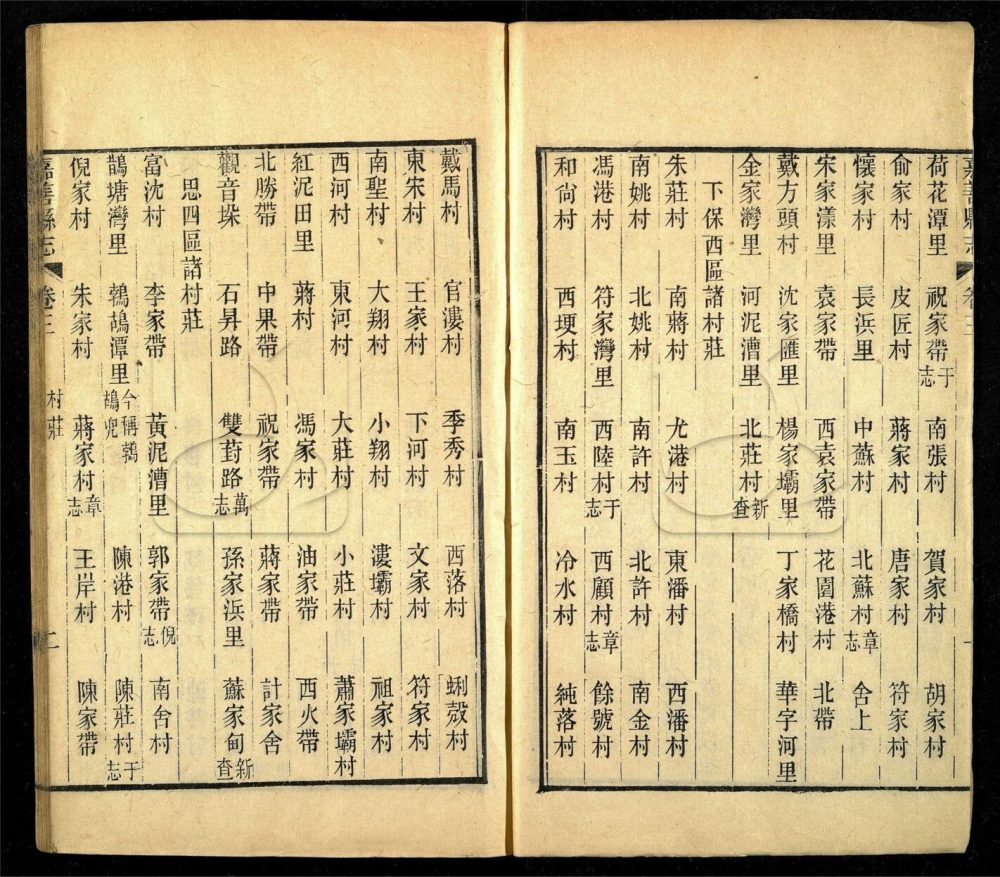 嘉善縣志 卷三
荷花潭里 祝家帶于志 南張村 賀家村 胡家村
俞家村 皮匠村 蔣家村 唐家村 符家村
懷家村 長浜里 中蘇村 北蘇村章志 舍上
宋家漾里 袁家帶 西袁家帶 花園港村 北帶
戴方頭村 沈家匯里 楊家壩里 丁家橋村 華字河里
金家灣里 河泥漕里 北莊村新查
下保西區諸村莊
朱莊村 南蔣村 尤港村 東潘村 西潘村
南姚村 北姚村 南許村 北許村 南金村
馮港村 符家灣里 西陸村于志 西顧村章志 餘號村
和尚村 西埂村 南玉村 冷水村 純落村
戴馬村 官漊村 季秀村 西落村 蜊殼村
東宋村 王家村 下河村 文家村 符家村
南聖村 大翔村 小翔村 漊壩村 祖家村
西河村 東河村 大莊村 小莊村 蕭家壩村
紅泥田里 蔣村 馮家村 油家帶 西火帶
北勝帶 中果帶 祝家帶 蔣家帶 計家舍
觀音垛 石昇路 雙葑路萬志 孫家浜里 蘇家甸新查
思四區諸村莊
富沈村 李家帶 黃泥漕里 郭家帶倪志 南舍村
鵲塘灣里 鶉鴣潭里今稱鶉鴣兜 陳港村 陳莊村于志
倪家村 朱家村 蔣家村章志 王岸村 陳家帶
嘉善縣志 卷三 村莊 二